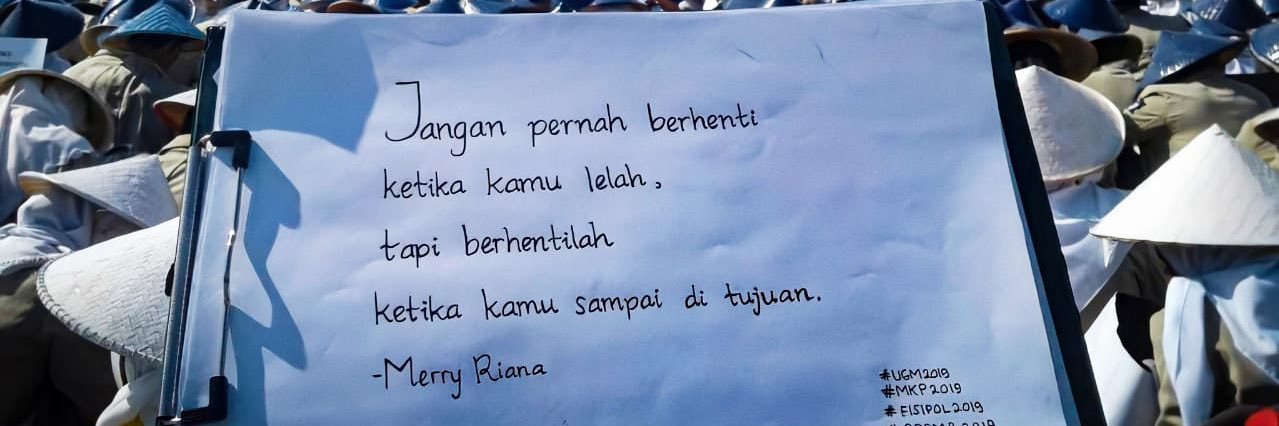 Jangan pernah berhenti
ketika kamu lelah,
tapi berhentilah
ketika kamu sampai di tujuan.
-Merry Riana
#UGM2019
#MKP2019
#FISIPOL2019